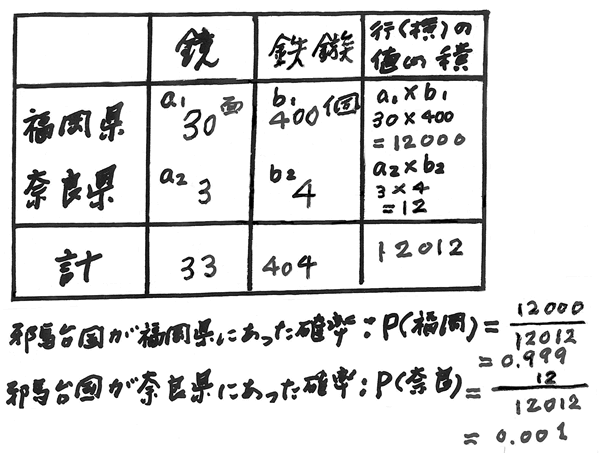 鏡 鉄鏃 行(横)の値の積
福岡県 a₁ 30面 b₁ 400個 a₁×b₁
30×400
=12000
奈良県 a₂ 3 b₂ 4 a₂×b₂
3×4
=12
計 33 404 12012
邪馬台国が福岡県にあった確率:P(福岡)=12000/12012
=0.999
邪馬台国が奈良県にあった確率:P(奈良)=12/12012
=0.001